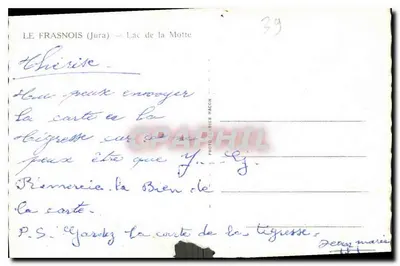 39
LE FRASNOIS (Jura) — Lac de la Motte
Thérèse.
peux envoyer
la carte a la
tigresse
peux être que
Remercie-la Bien de
la carte.
P.S. Gardez la carte de la tigresse.
Jean Marie